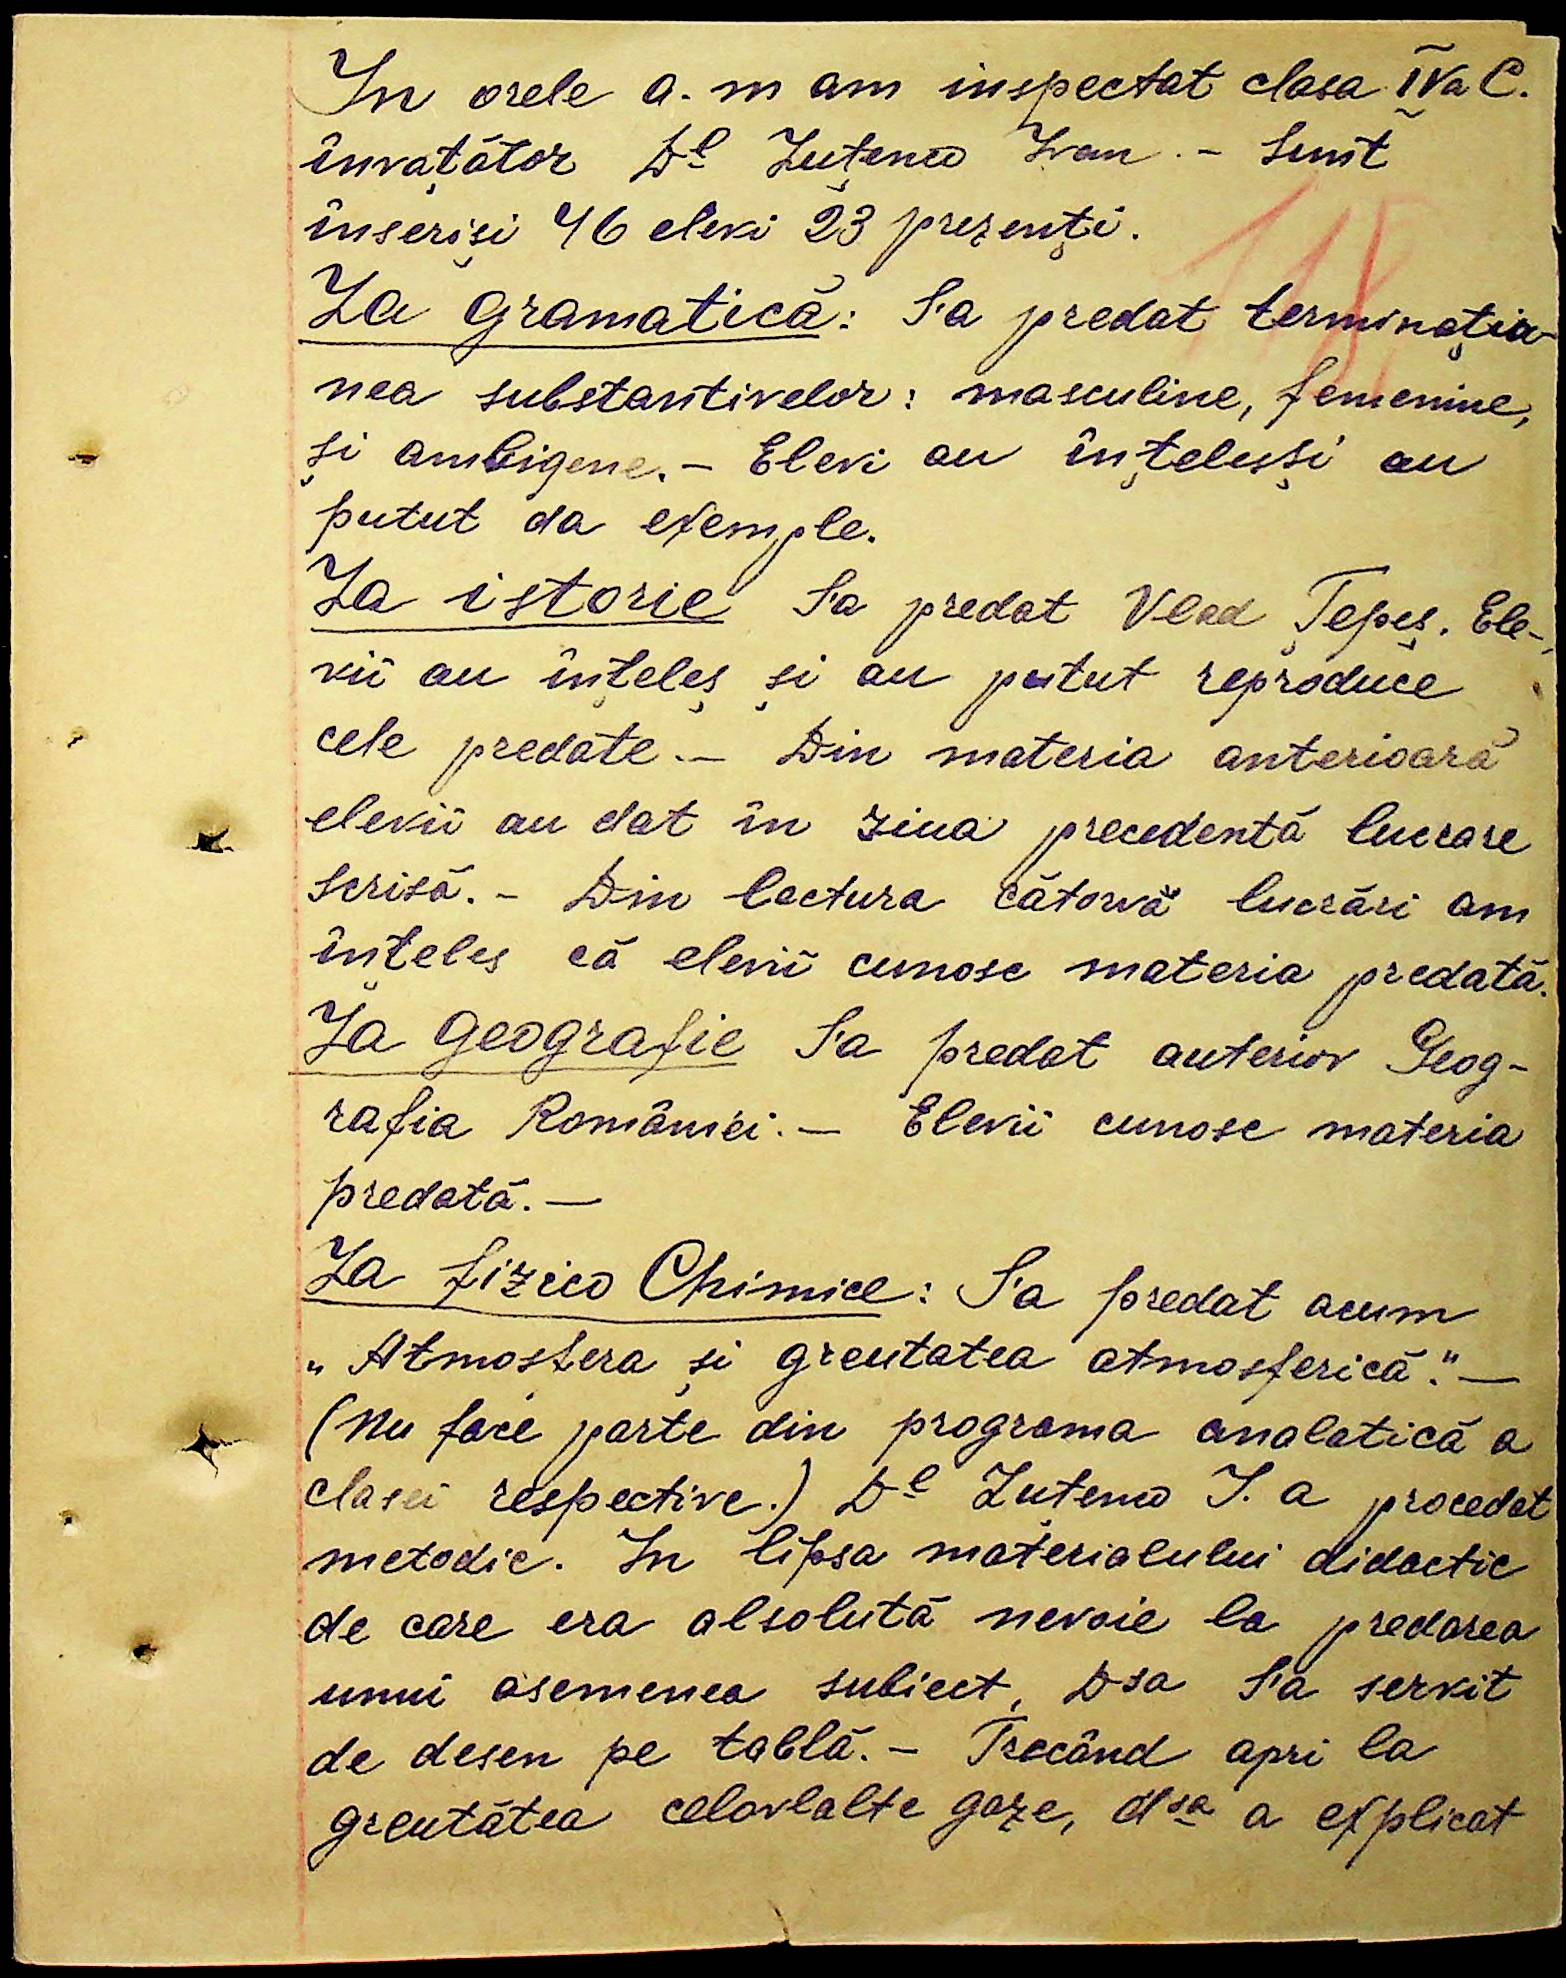 In orele a.m am inspectat clasa IVa C.
învățător Dl Luțenco Ivan. - Sunt
înseriși 46 elevi 23 prezenți.
La gramatică: S'a predat terminația-
nea substantivelor: masculine, femenine,
și ambigene. - Elevi au ințelesși au
putut da exemple.
La istorie S'a predat Vlad Țepeș. Ele-
vii au ințeleș și au putut reproduce
cele predate. - Din materia anterioară
elevii au dat în ziua precedentă lucrare
scrisă. - Din lectura cătorva lucrări am
ințeles că elevii cunosc materia predată.
La geografie S'a predat anterior Geog-
rafia României. - Elevii cunosc materia
predată. -
La fizico Chimice: S'a predat acum
„Atmosfera și greutatea atmosferică." -
(Nu face parte din programa analatică a
clasei respective.) Dl Luțenco I. a procedat
metodic. In lipsa materialului didactic
de care era absolută nevoie la predarea
unui asemenea subiect, Dsa S'a servit
de desen pe tablă. - Trecând apri la
greutătea celorlalte gaze, dsa a explicat